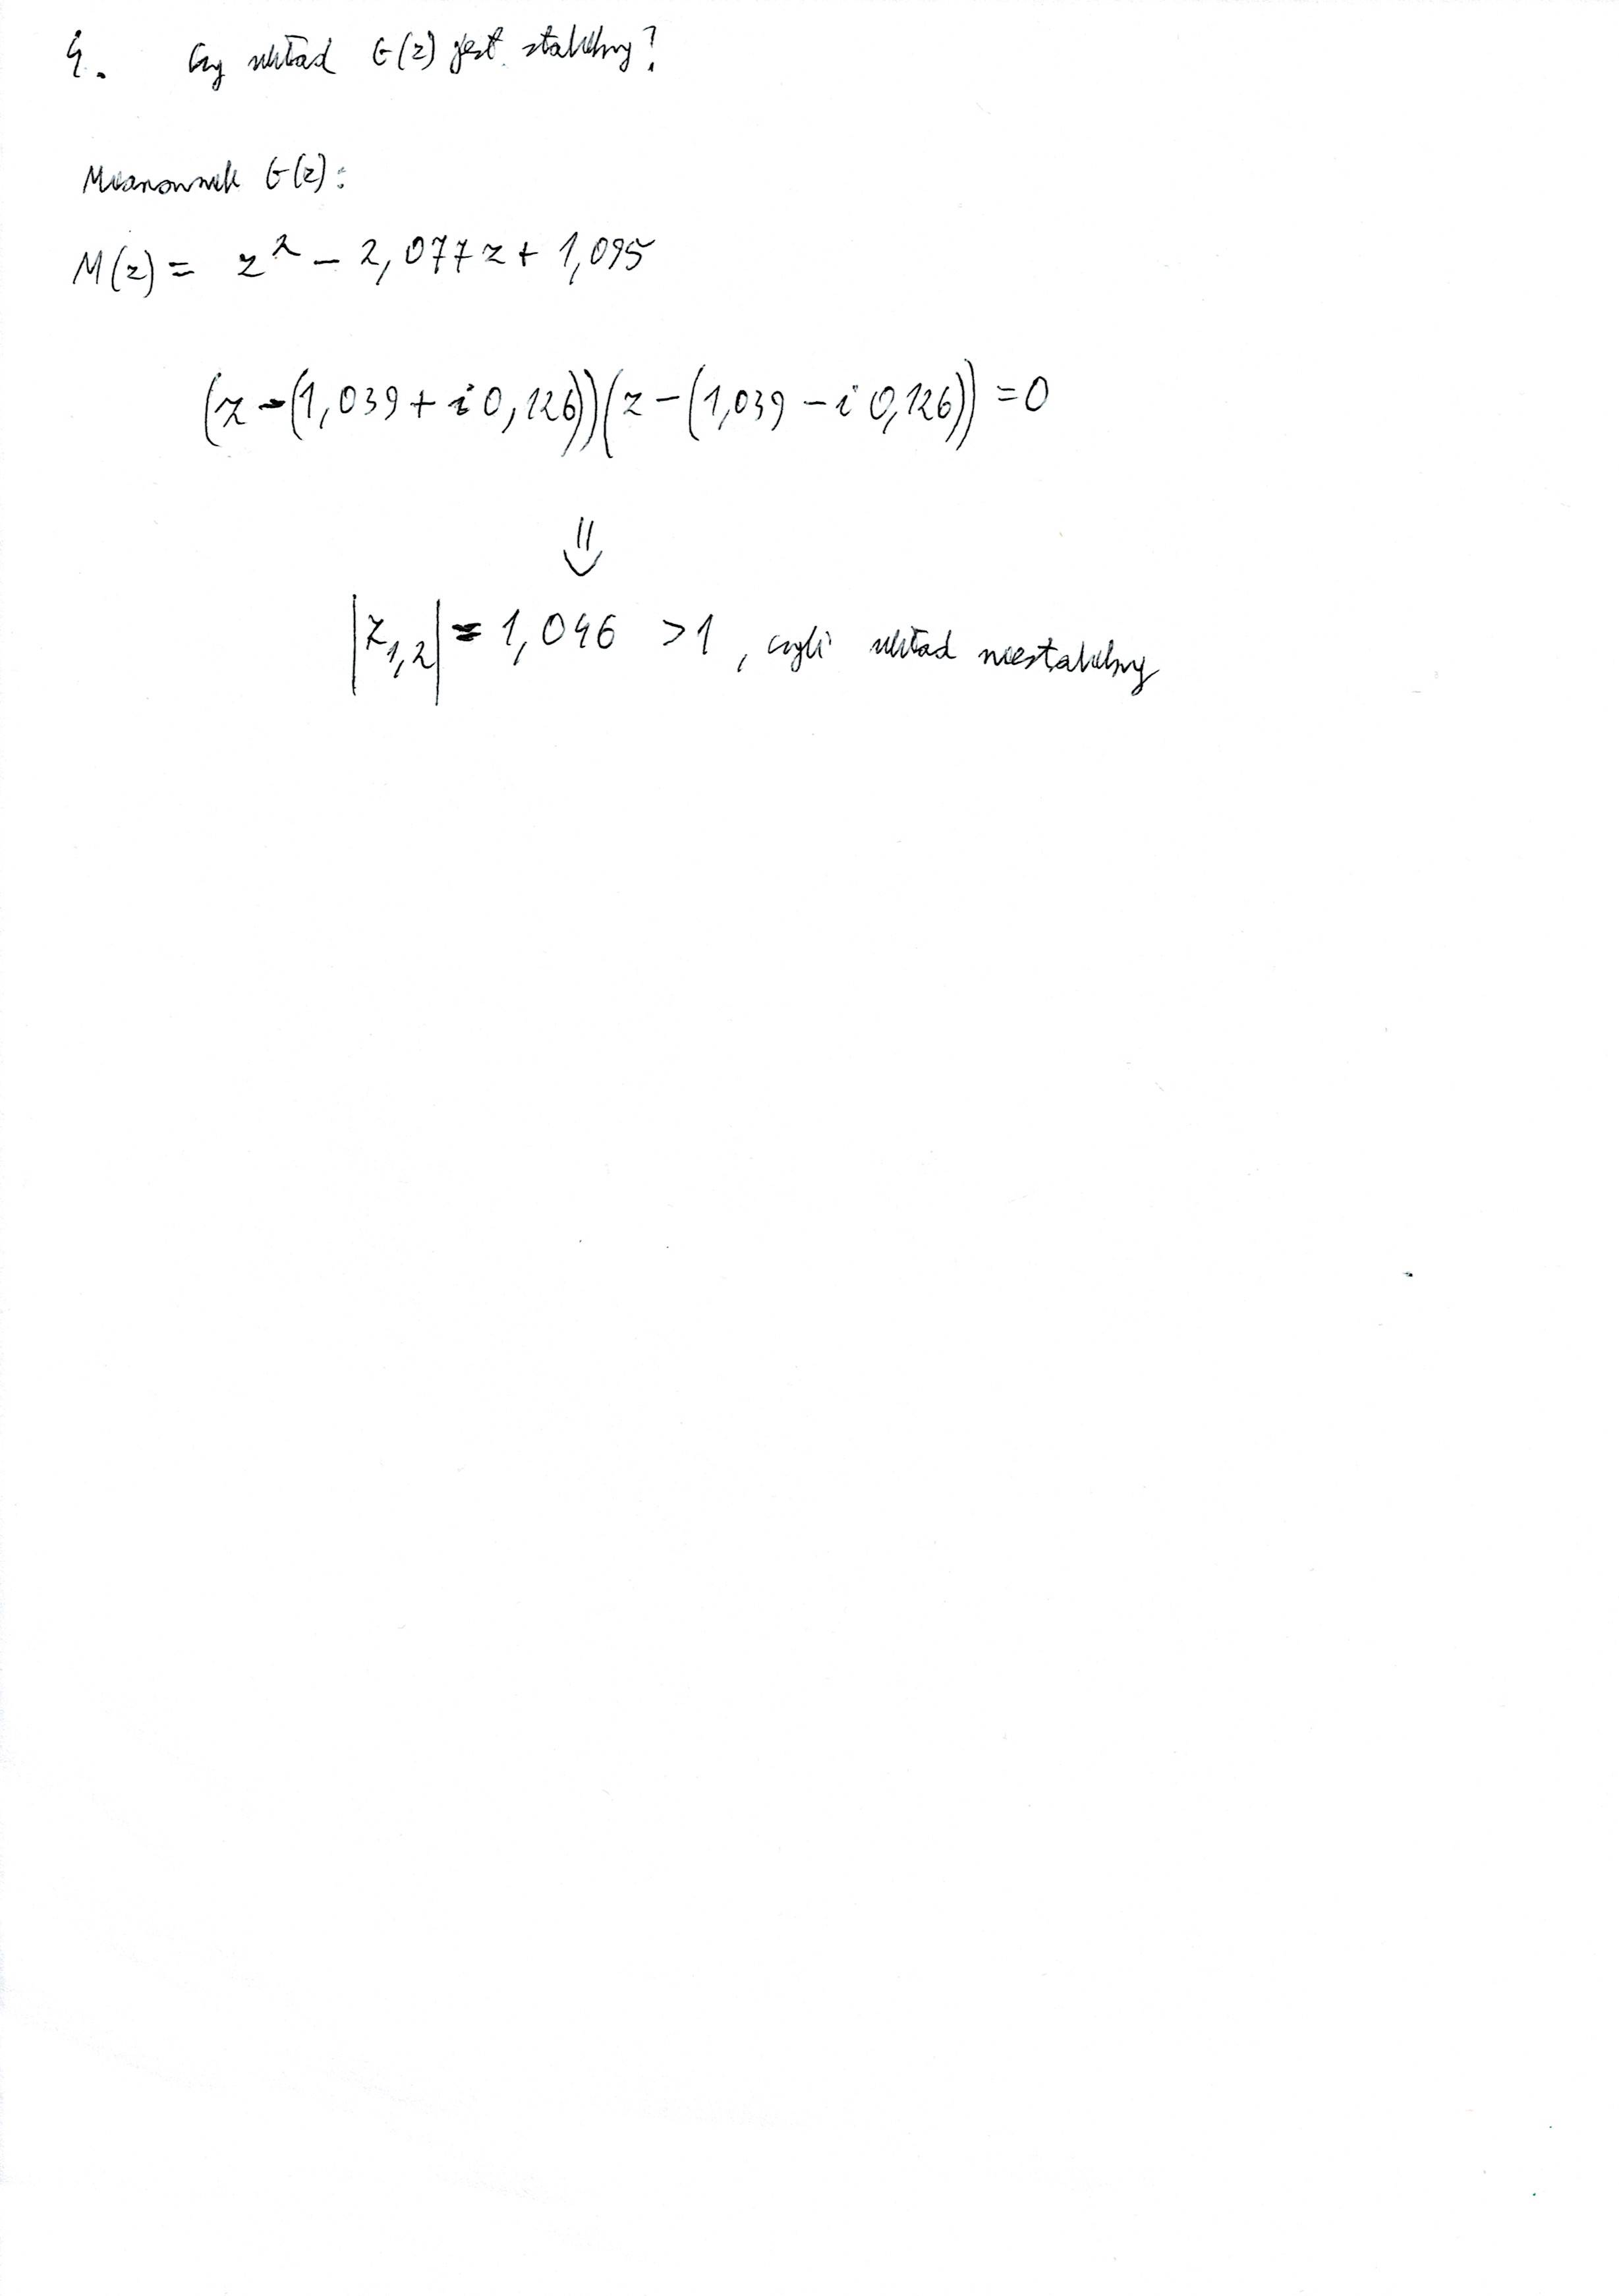 4. Czy układ G(z) jest stabilny?
Mianownik G(z):
M(z) = z² - 2,077z + 1,095
(z-(1,039+i0,126))(z-(1,039-i0,126))=0
⇓
|z₁,₂| = 1,046 >1, czyli układ niestabilny